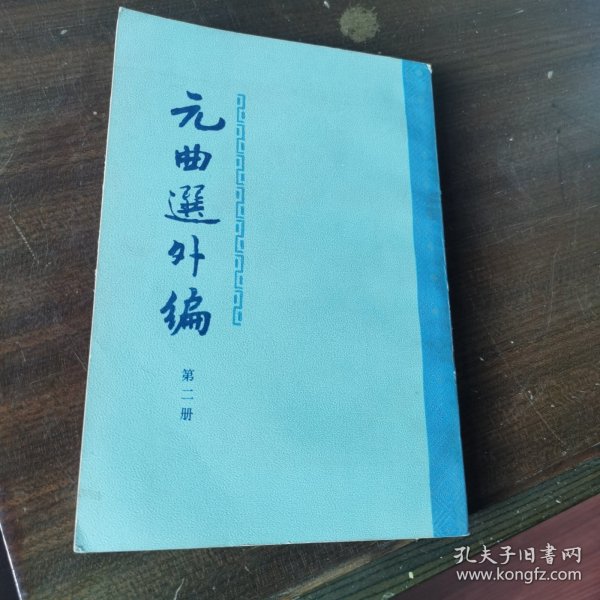 元曲選外編
第二册
孔夫子旧書网
www.kongfz.com